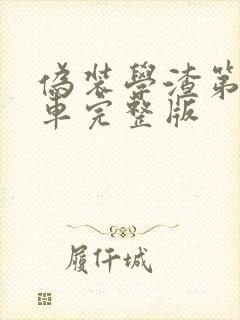 偽裝學渣第
車完整版
履仟城